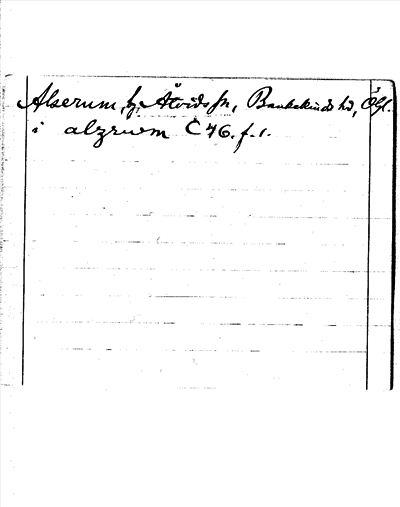 Alserum, by, Åtvids sn, Bankekinds hd, Ögl.
i alzrwm C 46. f. 1.